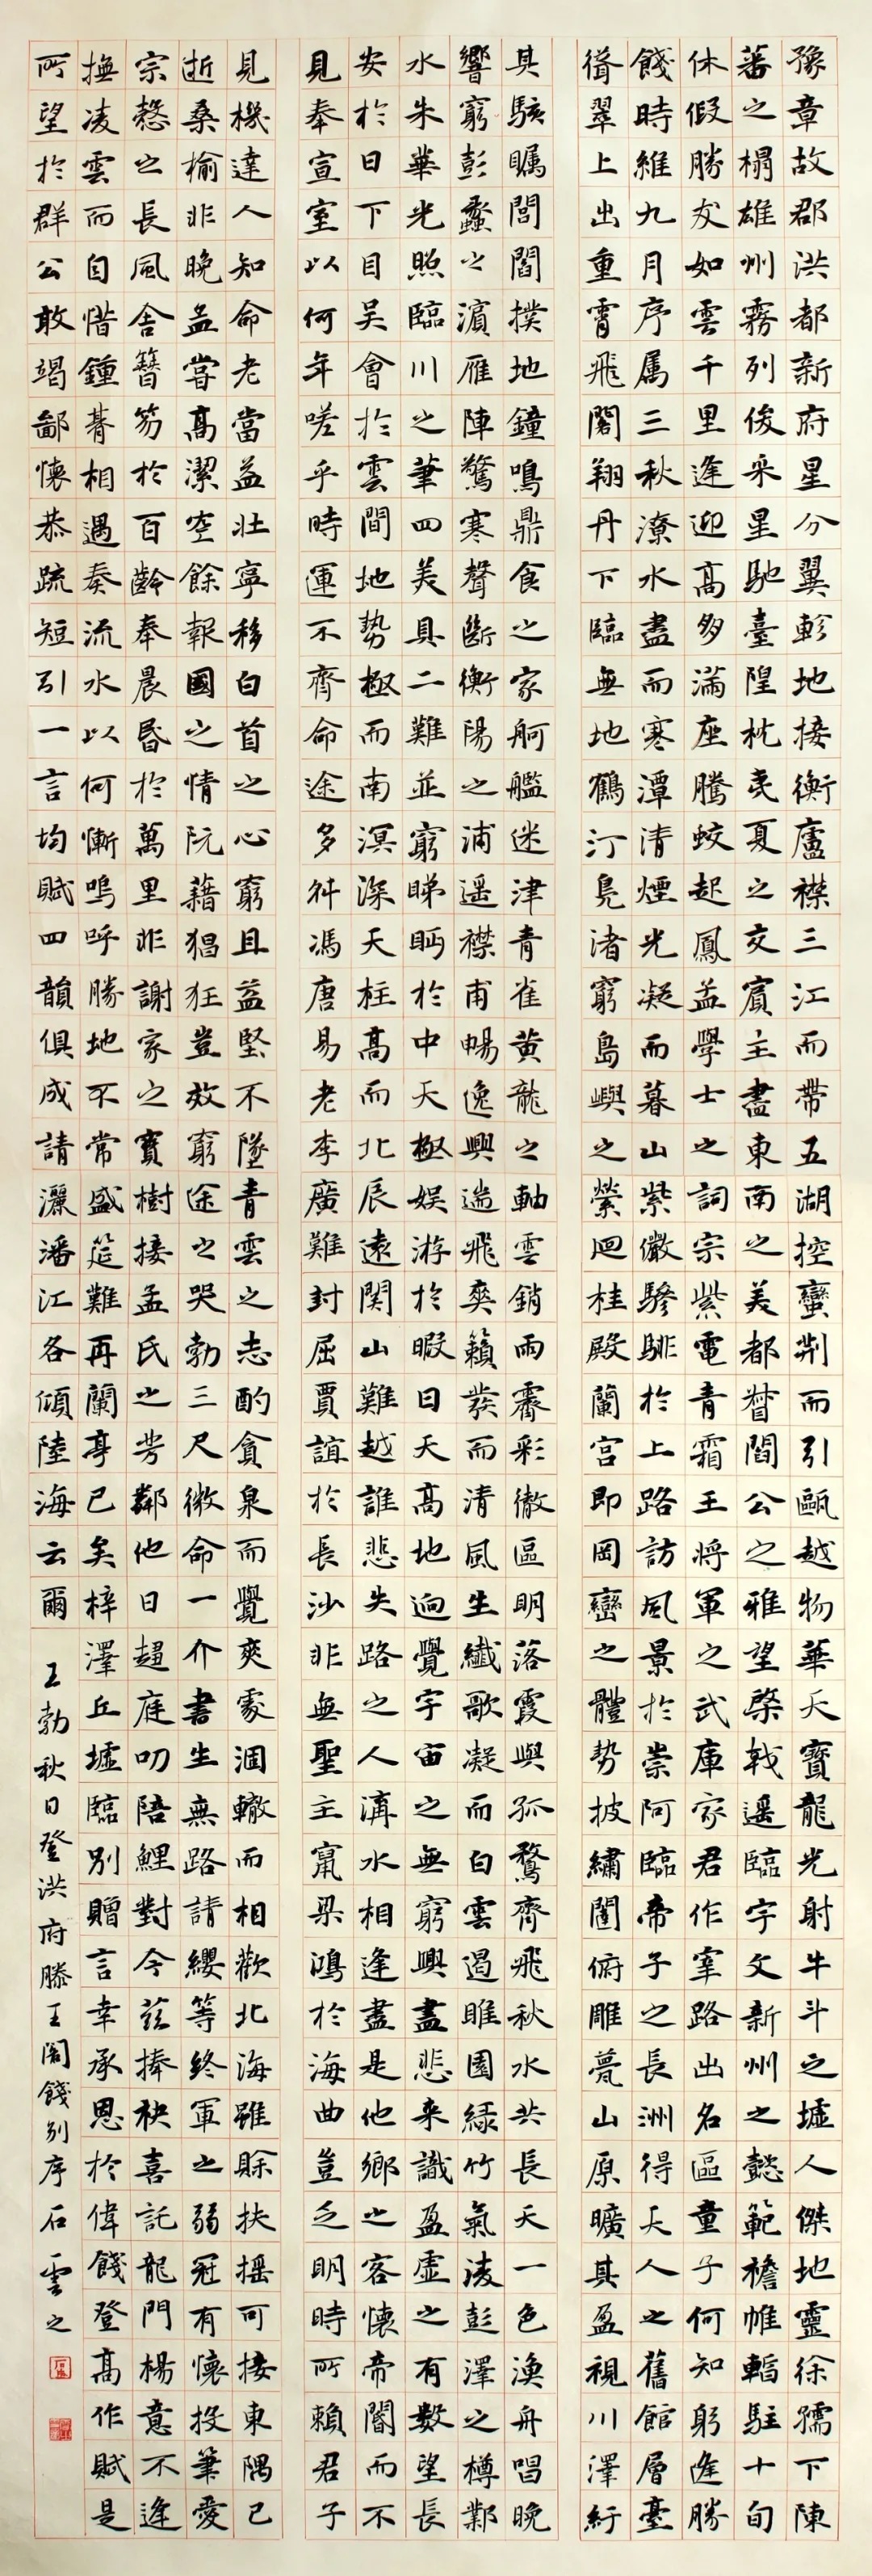 豫章故郡洪都新府星分翼軫地接衡廬襟三江而帶五湖控蠻荆而引甌越物華天寶龍光射牛斗之墟人傑地靈徐孺下陳
蕃之榻雄州霧列俊采星馳臺隍枕夷夏之交賓主盡東南之美都督閻公之雅望棨戟遥臨宇文新州之懿範襜帷暫駐十旬
休假勝友如雲千里逢迎高朋滿座騰蛟起鳳孟學士之詞宗紫電青霜王將軍之武庫家君作宰路出名區童子何知躬逢勝
餞時維九月序属三秋潦水盡而寒潭清煙光凝而暮山紫儼驂騑於上路訪風景於崇阿臨帝子之長洲得天人之舊館層臺
聳翠上出重霄飛閣翔丹下臨無地鶴汀鳧渚窮島嶼之縈迴桂殿蘭宮即岡巒之體勢披繡闥俯雕甍山原曠其盈視川澤紆
其駭矚閭閻撲地鐘鳴鼎食之家舸艦迷津青雀黄龍之軸雲銷雨霽彩徹區明落霞與孤鶩齊飛秋水共長天一色漁舟唱晚
響窮彭蠡之濱雁陣驚寒聲斷衡陽之浦遥襟甫暢逸興遄飛爽籟發而清風生纖歌凝而白雲遏睢園緑竹氣凌彭澤之樽鄴
水朱華光照臨川之筆四美具二難並窮睇眄於中天極娱游於暇日天高地迥覺宇宙之無窮興盡悲來識盈虚之有數望長
安於日下目吴會於雲間地勢極而南溟深天柱高而北辰遠関山難越誰悲失路之人溝水相逢盡是他鄉之客懷帝閽而不
見奉宣室以何年嗟乎時運不齊命途多舛馮唐易老李廣難封屈賈誼於長沙非無聖主竄梁鴻於海曲豈乏明時所賴君子
見機達人知命老當益壯寧移白首之心窮且益堅不墜青雲之志酌貪泉而覺爽處涸轍而相歡北海雖賒扶摇可接東隅已
逝桑榆非晚孟嘗高潔空餘報國之情阮藉猖狂豈效窮途之哭勃三尺微命一介書生無路請纓等終軍之弱冠有懷投筆愛
宗慤之長風舍簪笏於百齡奉晨昏於萬里非謝家之寶樹接孟氏之芳鄰他日趨庭叨陪鯉對今兹捧袂喜託龍門楊意不逢
撫凌雲而自惜鍾朞相遇奏流水以何慚嗚呼勝地不常盛筵難再蘭亭已矣梓澤丘墟臨别贈言幸承恩於偉餞登高作賦是
所望於群公敢竭鄙懷恭疏短引一言均賦四韻俱成請灑潘江各傾陸海云爾 王勃秋日登洪府滕王閣餞别序石雲之